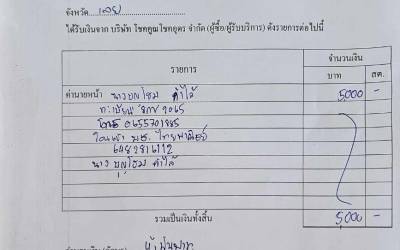 จังหวัด เลย
ได้รับเงินจาก บริษัท โชคคูณโชคอุดร จำกัด (ผู้ซื้อ/ผู้รับบริการ) ดังรายการต่อไปนี้
รายการ จำนวนเงิน
บาท สต.
ค่านายหน้า นางบุญโฮม คำไล้ 5,000 -
ทะเบียน 2065
โทร 0655701885
โอนเข้า ไทยพาณิชย์
6482816112
นางบุญโฮม คำไล้
รวมเป็นเงินทั้งสิ้น 5,000 -